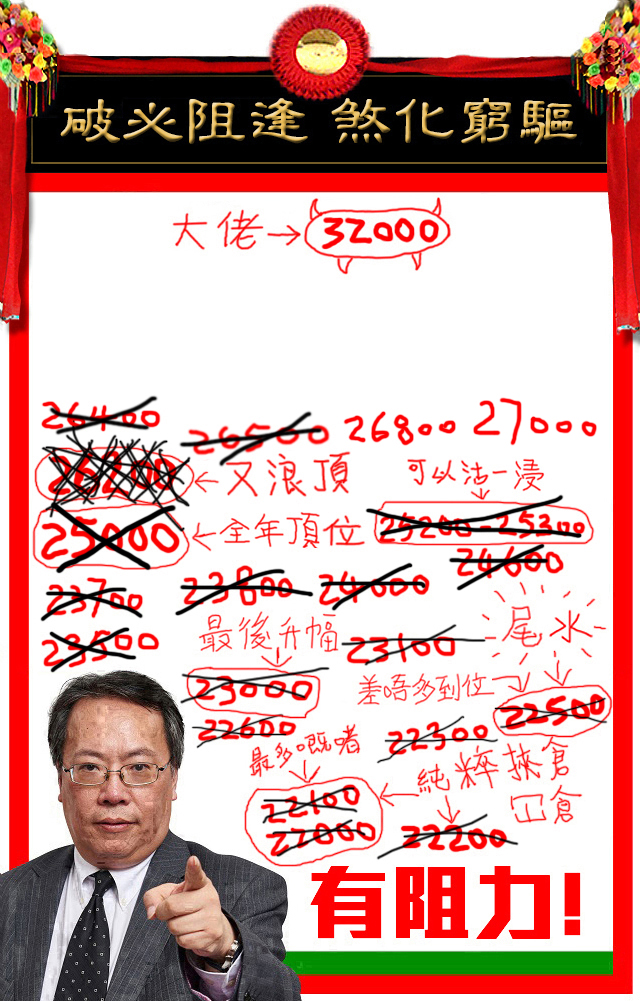 破必阻逢 煞化窮驅
大佬→32000
26400
26500 26800 27000
26200 ←又浪頂
可以沽一浸
25000 ←全年頂位
25200-25300
24600
23700 23800 24000
23500
最後升幅 23100 尾水
23000 差唔多到位 22500
22600 22300
最多嘅啫
22100 純粹挾倉
22000 22200 冚倉
有阻力!